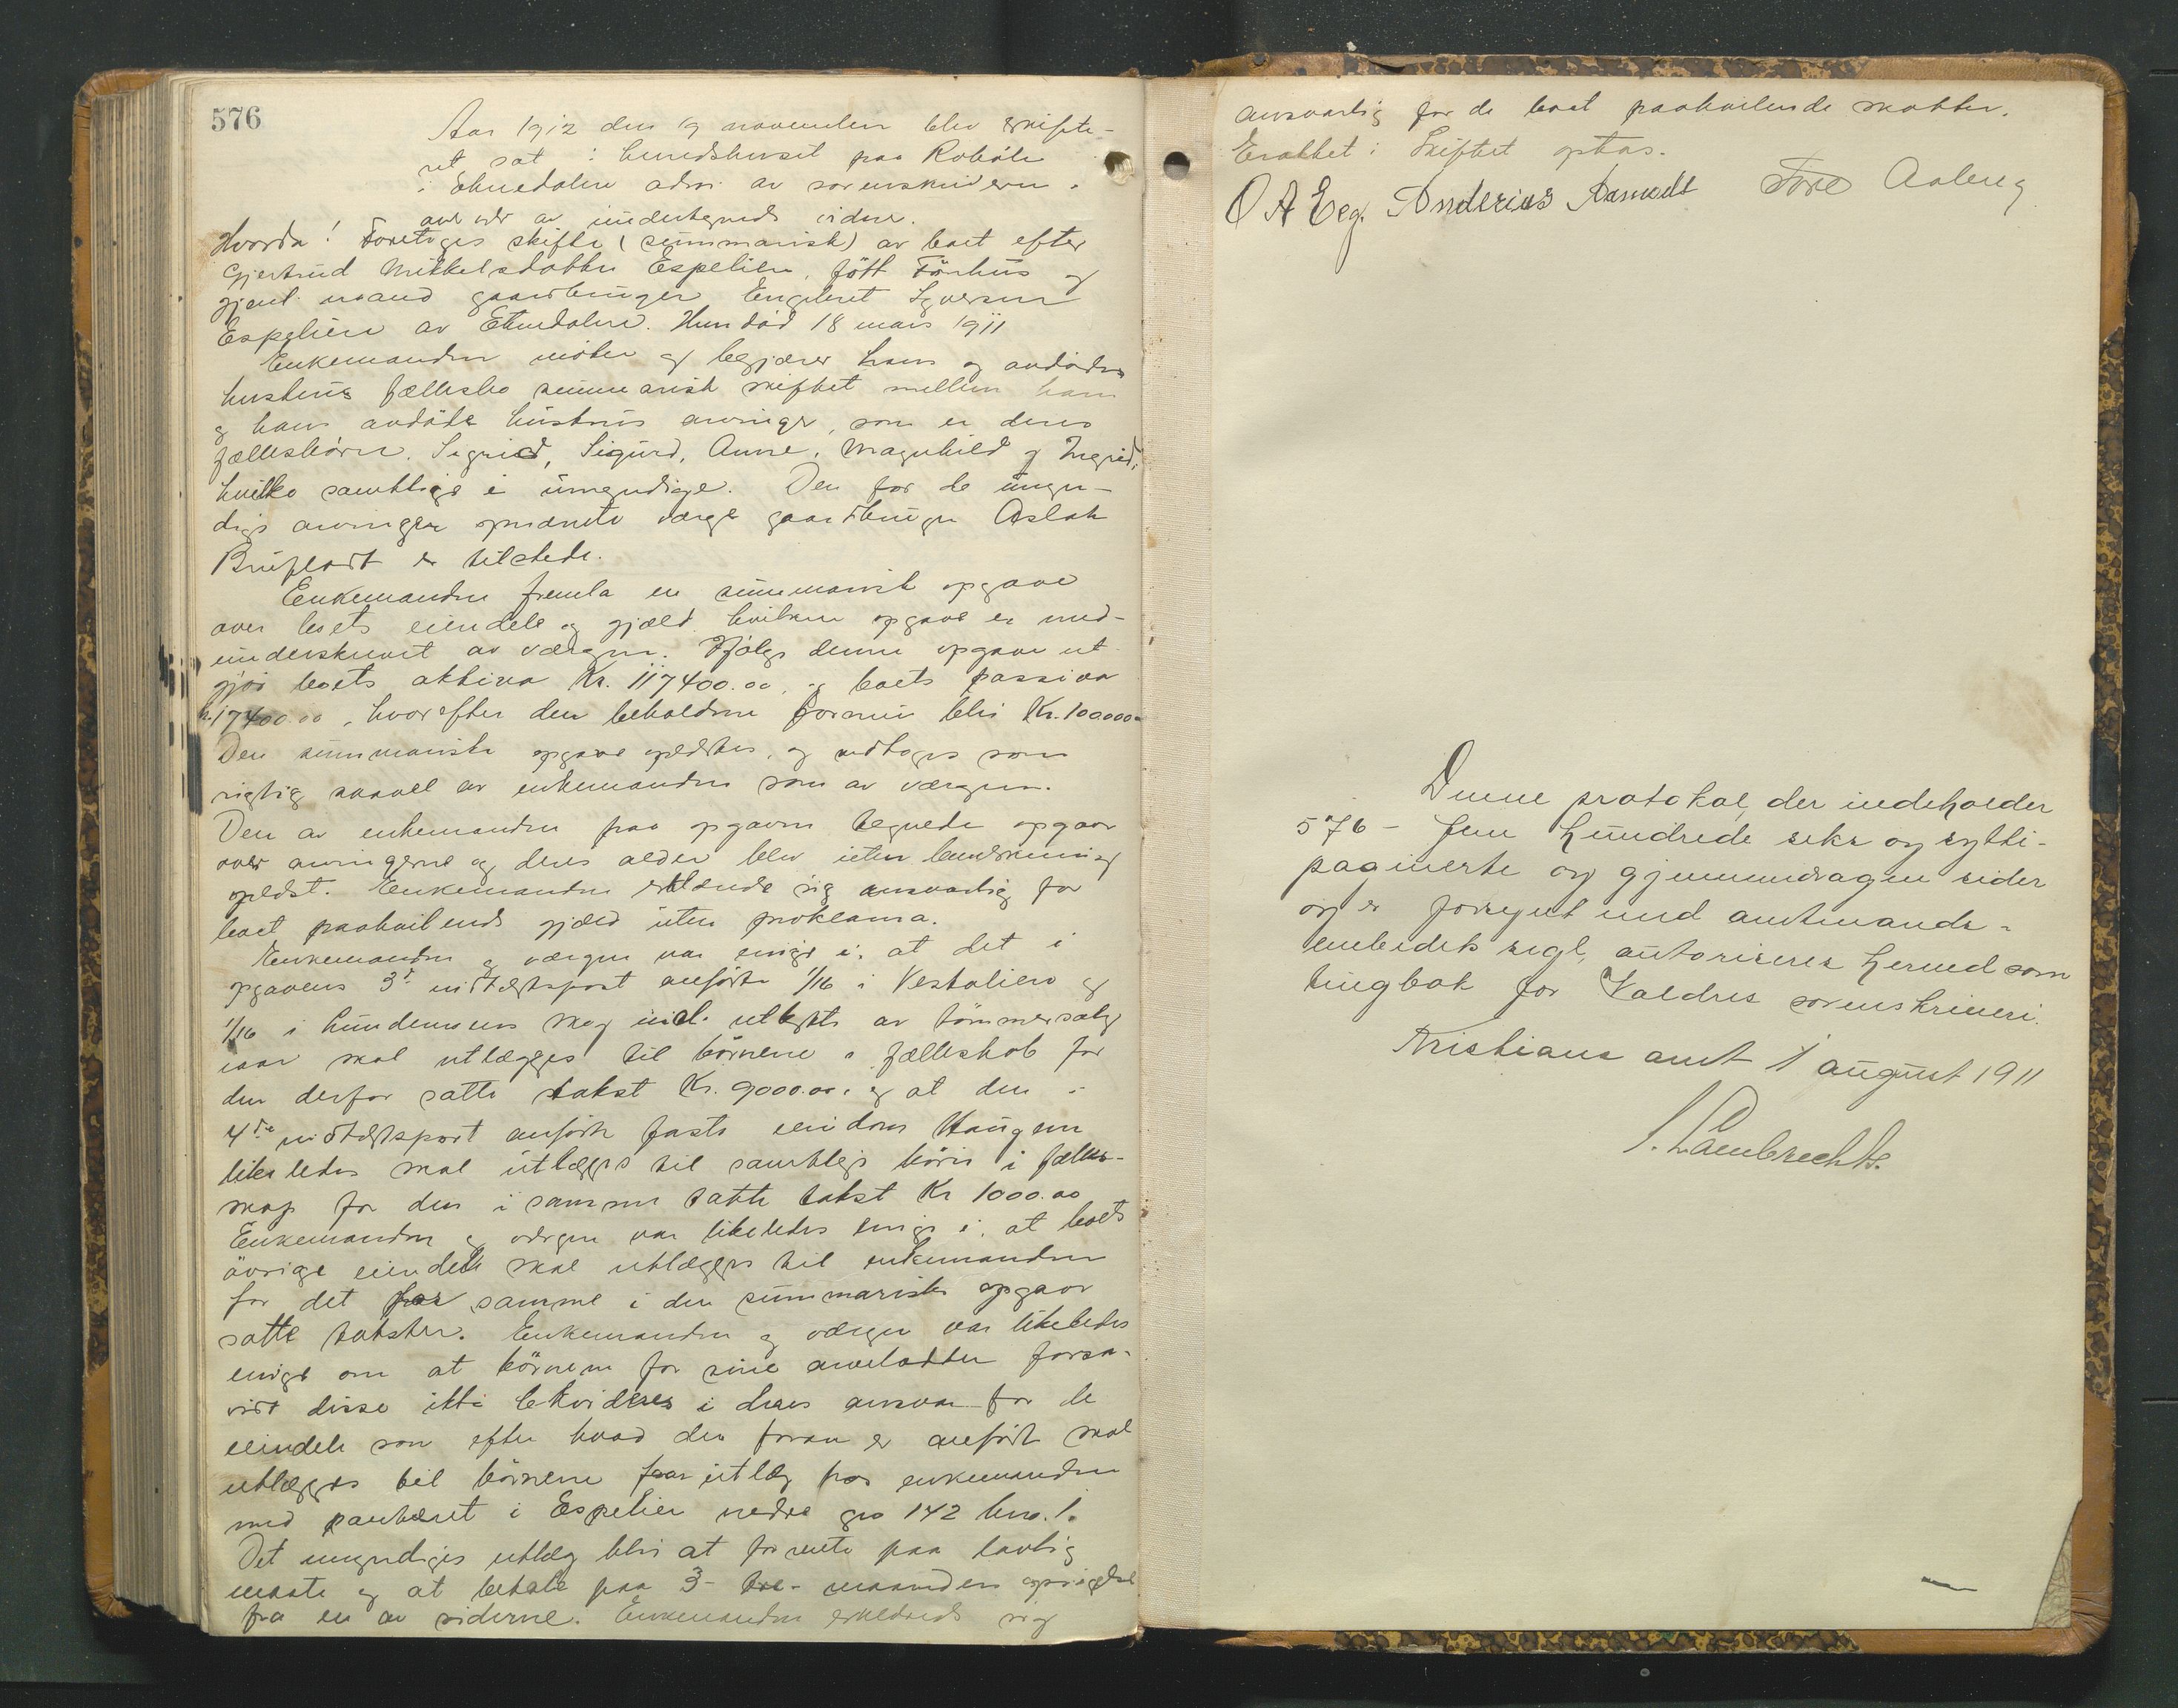 576
Aar 1912 den 19 november blev skifte-
ret sat i herredshuset paa Robøle
i Etnedalen adm. av sorenskriveren
ov er av undertegnede vidner.
Hvorda! Foretoges skifte (summarisk) av boet efter
Gjertrud Mikkelsdatter Espelien, født Fönhus og
gjenl. mand gaardbruger Engebret Iversen
Espelien av Etnedalen. Hun død 18 mars 1911
Enkemanden møter og begjærer hans og avdødes
hustrus fællesbo summarisk skiftet mellem ham
og hans avdøde hustrus arvinger, som er deres
fællesbørn, Sigrid, Sigurd, Anne, Magnhild og Ingrid,
hvilke samtlige er umyndige. Den for de umyn-
dige arvinger opnævnte verge gaardbruger Aslak
Bruflodt er tilstede.
Enkemanden fremla en summarisk opgave
over boets eiendele og gjæld hvilken opgave er med-
underskrevet av værgen. Ifølge denne opgave ut-
gjør boets aktiva Kr. 117400.00, og boets passiva
kr. 17400.00, hvorefter den beholdne formue blir Kr. 100000
Den summariske opgave oplæstes, og vedtoges som
rigtig saavel av enkemanden som av værgen.
Den av enkemanden paa opgaven tegnede opgave
over arvingerne og deres alder blev uten bemerkning
oplæst. Enkemanden erklærede sig ansvarlig for
boet paahvilende gjæld uten proklama.
Enkemanden og værgen var enige i, at det i
opgavens 3die indtægtspost anførte 1/16 i Vestalien og
1/16 i hundemoens skog incl. utbytte av tømmersalg
iaar skal utlægges til børnene i fælleskab for
den derfor satte takst Kr. 9000.00, og at den i
4de indtægtspost anførte faste eiendom Haugen
likeledes skal utlægges til samtlige børn i fælles-
skap for den i samme satte takst Kr 1000.00
Enkemanden og værgen var likeledes enige i, at boets
øvrige eiendele skal utlægges til enkemanden
for det for samme i den summariske opgave
satte takster. Enkemanden og værgen var likeledes
enige om at børnene for sine arvelodder forsaa-
vidt disse ikke likvideres i deres ansvar for de
eiendele som efter hvad der foran er anført skal
utlægges til børnene faar utlæg hos enkemanden
med panteret i Espelien nedre gno 142 bno. 1.
Det umyndiges utlæg blir at forrente paa lovlig
maate og at betale paa 3 - tre - maaneders opsigelse
fra en av siderne. Enkemanden erklærede sig
ansvarlig for de boet paahvilende skatter.
Extrakt i Skiftet optas.
O A Eeg. Anderius Aamodt Tore Aaberg
Denne protokol, der indeholder
576 - fem hundrede seks og sytti-
paginerte og gjennemdragne sider
og er forsynt med amtmands-
embedets segl, autoriseres herved som
tingbok for Valdres sorenskriveri.
Kristians amt 1 august 1911
S. Lambrechts.